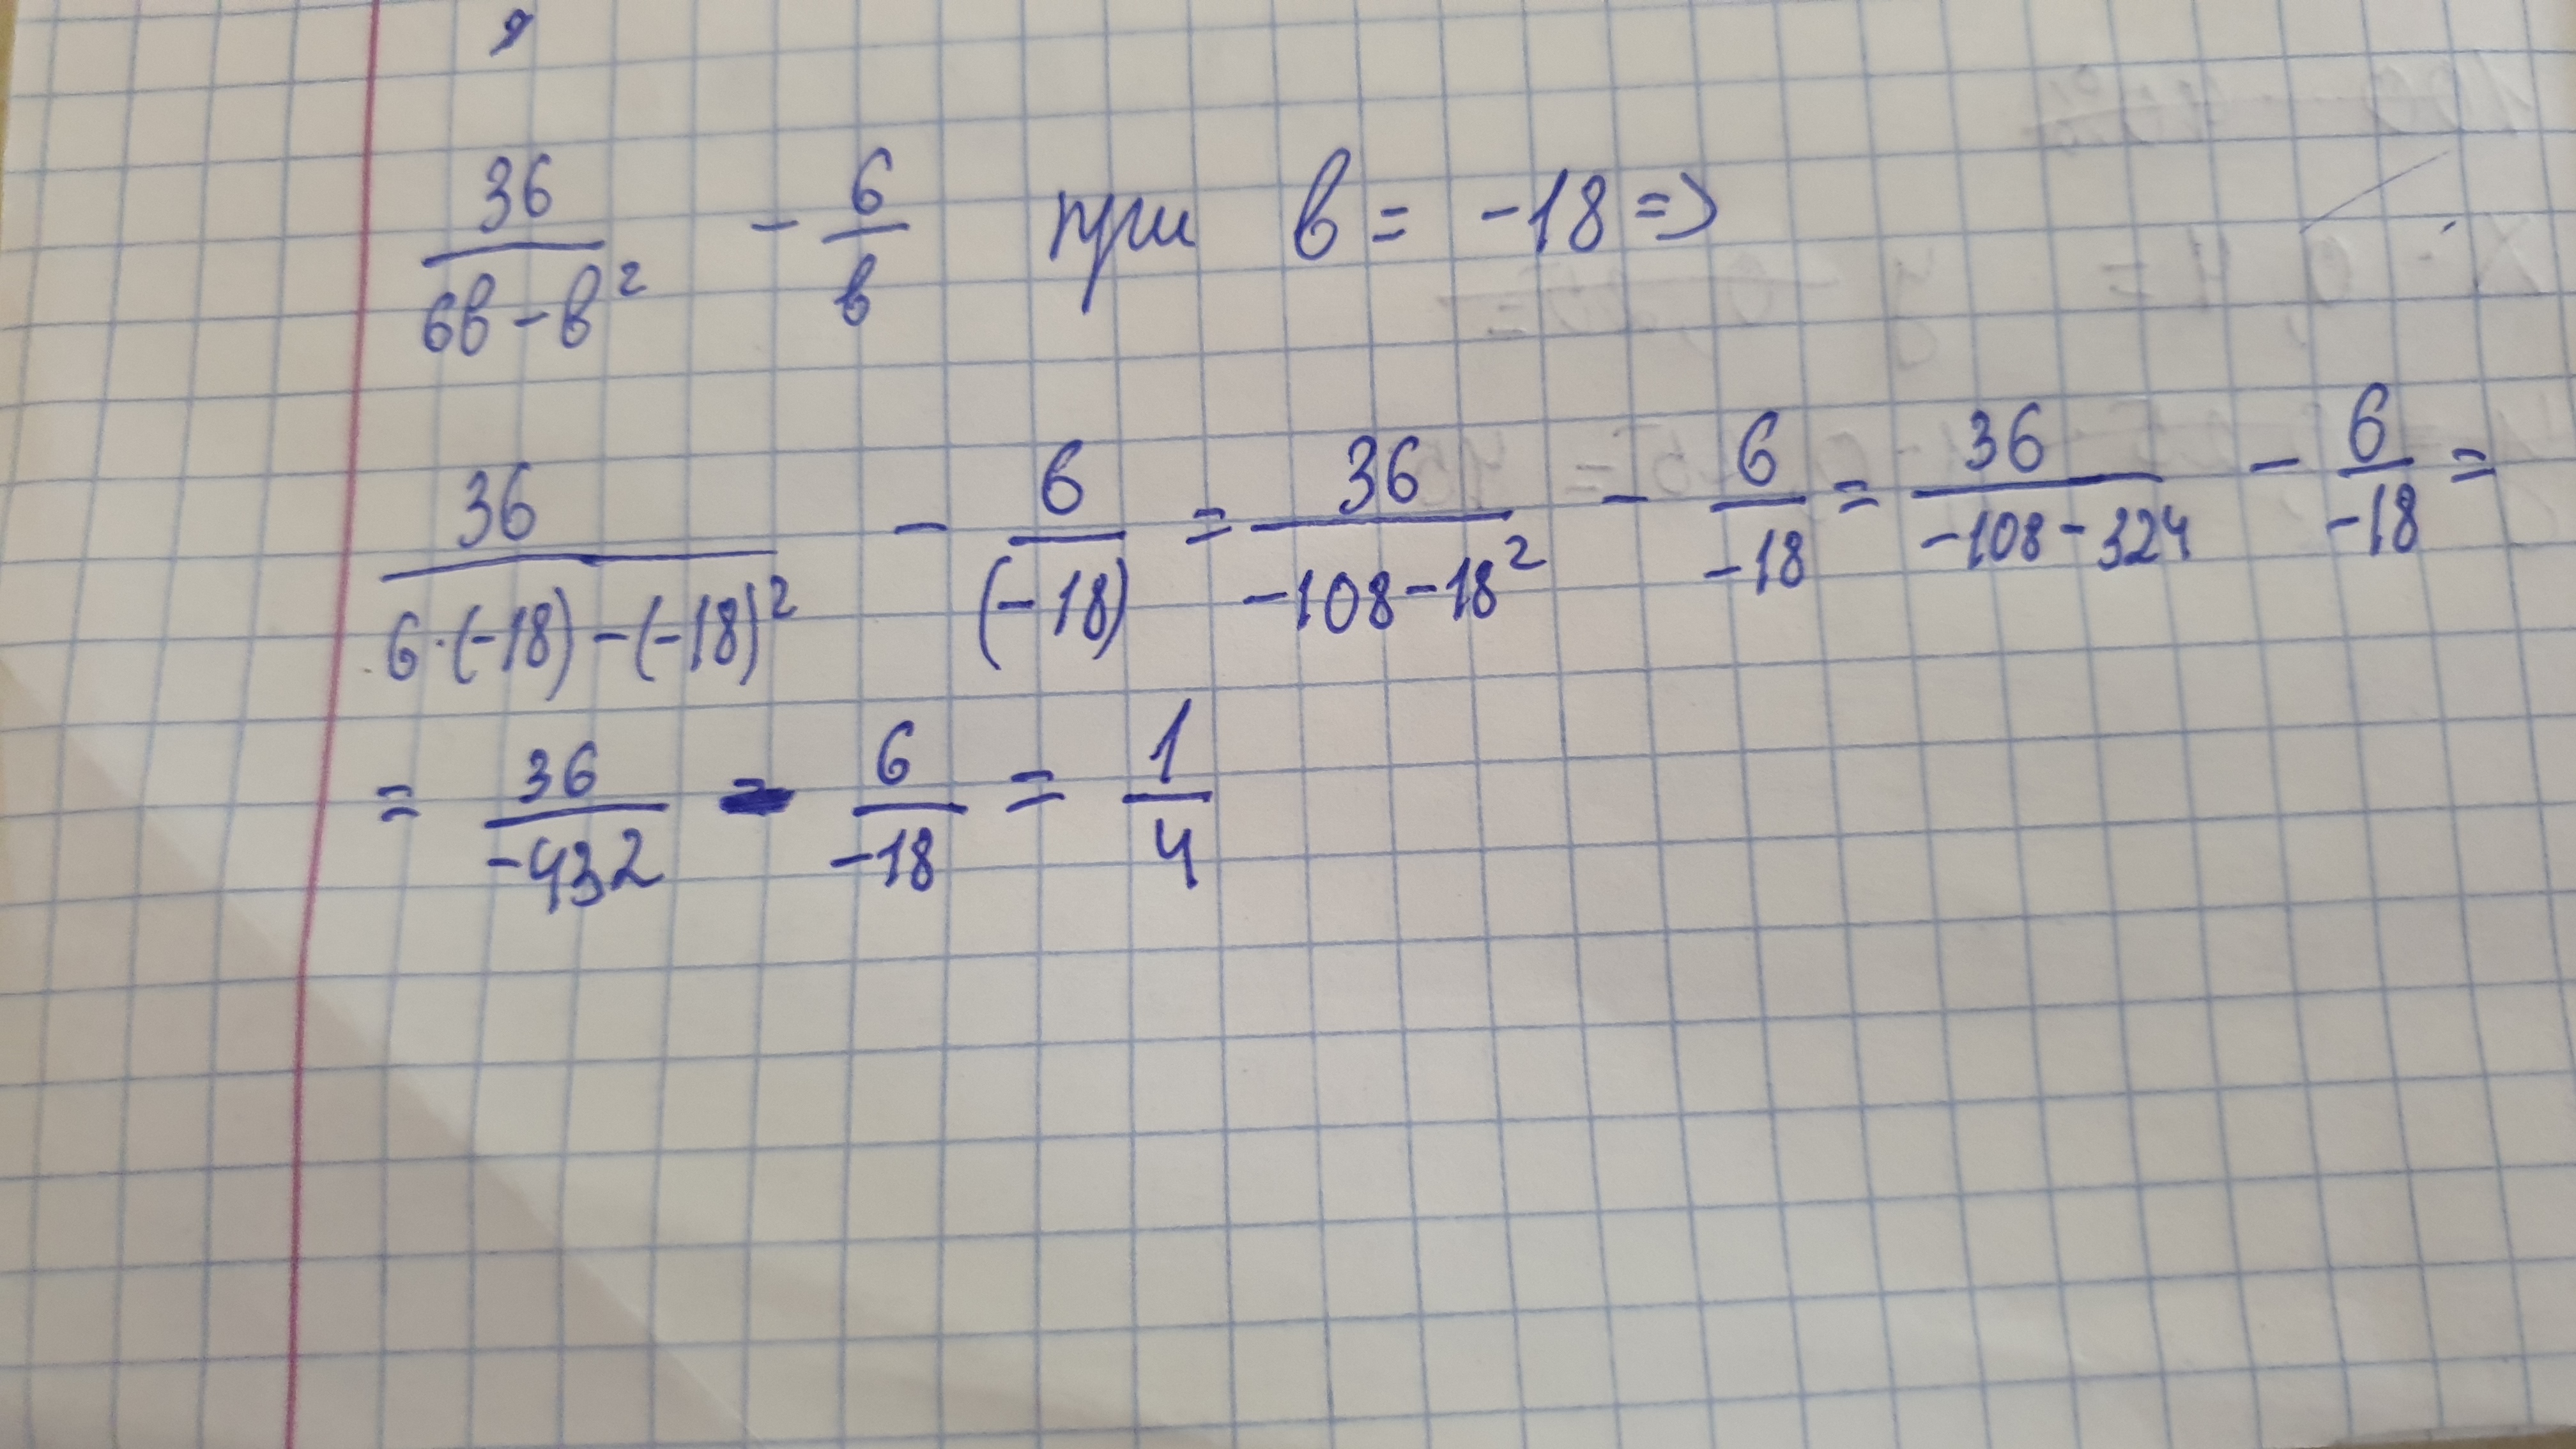 36/(6в-в²) - 6/в при в = -18 =>
36/(6·(-18)-(-18)²) - 6/(-18) = 36/(-108-18²) - 6/-18 = 36/(-108-324) - 6/-18 =
= 36/-432 - 6/-18 = 1/4